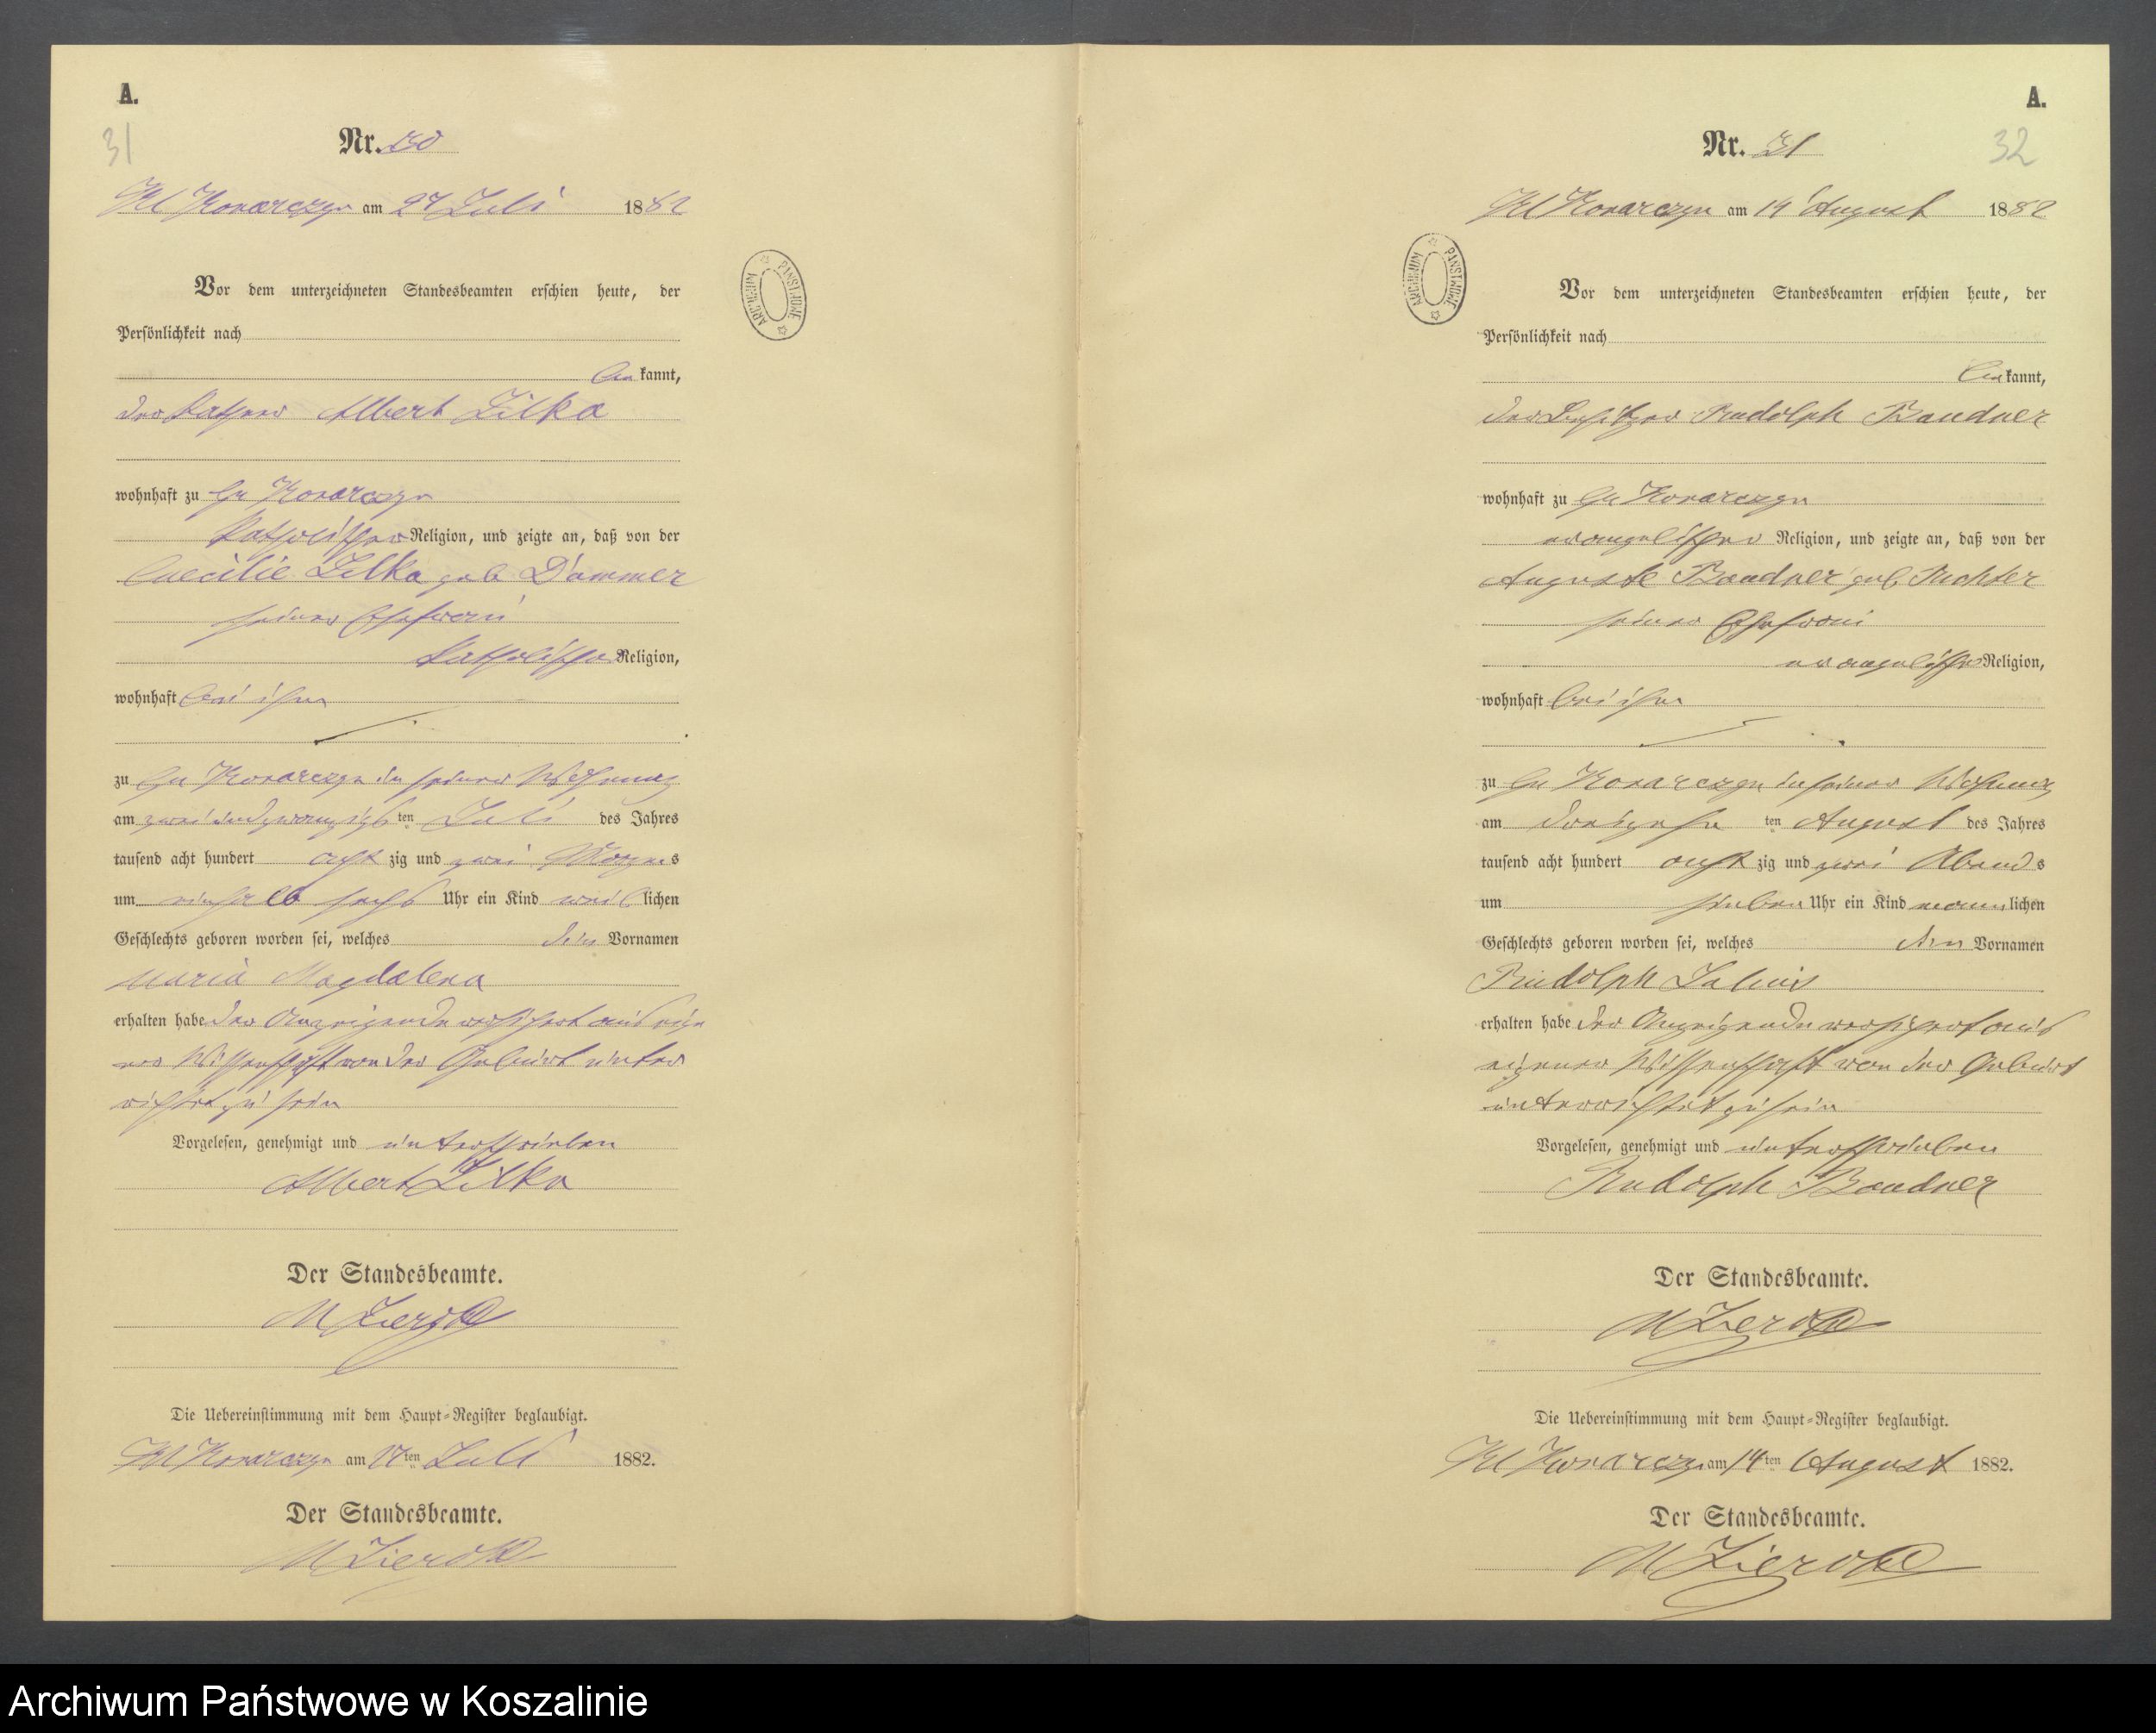 A.
31
Nr. 30
Kl Konarczyn am 27 Juli 1882
ARCHIWUM PAŃSTWOWE
Vor dem unterzeichneten Standesbeamten erschien heute, der
Persönlichkeit nach
be kannt,
der Käthner Albert Zilka
wohnhaft zu Gr Konarczyn
katholischer Religion, und zeigte an, daß von der
Caecilie Zilka geb Dammer
seiner Ehefrau
katholischer Religion,
wohnhaft bei ihm
zu Gr Konarczyn in seiner Wohnung
am zwei und zwanzigsten Juli des Jahres
tausend acht hundert acht zig und zwei Morgens
um einhalb sechs Uhr ein Kind weib lichen
Geschlechts geboren worden sei, welches den Vornamen
Maria Magdalena
erhalten habe der Anzeigende versichert aus eige
ner Wissenschaft von der Geburt unter
richtet zu sein
Vorgelesen, genehmigt und unterschrieben
Albert Zilka
Der Standesbeamte.
Die Uebereinstimmung mit dem Haupt-Register beglaubigt.
Kl Konarczyn am ten Juli 1882.
Der Standesbeamte.
A.
32
Nr. 31
Kl Konarczyn am 14 August 1882
ARCHIWUM PAŃSTWOWE
Vor dem unterzeichneten Standesbeamten erschien heute, der
Persönlichkeit nach
be kannt,
der Besitzer Rudolph Bandner
wohnhaft zu Gr Konarczyn
evangelischer Religion, und zeigte an, daß von der
Auguste Bandner geb Richter
seiner Ehefrau
evangelischer Religion,
wohnhaft bei ihm
zu Gr Konarczyn in seiner Wohnung
am dreizehn ten August des Jahres
tausend acht hundert acht zig und zwei Abends
um sieben Uhr ein Kind mann lichen
Geschlechts geboren worden sei, welches den Vornamen
Rudolph Julius
erhalten habe der Anzeigende versichert aus
eigener Wissenschaft von der Geburt
unterrichtet zu sein
Vorgelesen, genehmigt und unterschrieben
Rudolph Bandner
Der Standesbeamte.
Die Uebereinstimmung mit dem Haupt-Register beglaubigt.
Kl Konarczyn am 14 ten August 1882.
Der Standesbeamte.
Archiwum Państwowe w Koszalinie